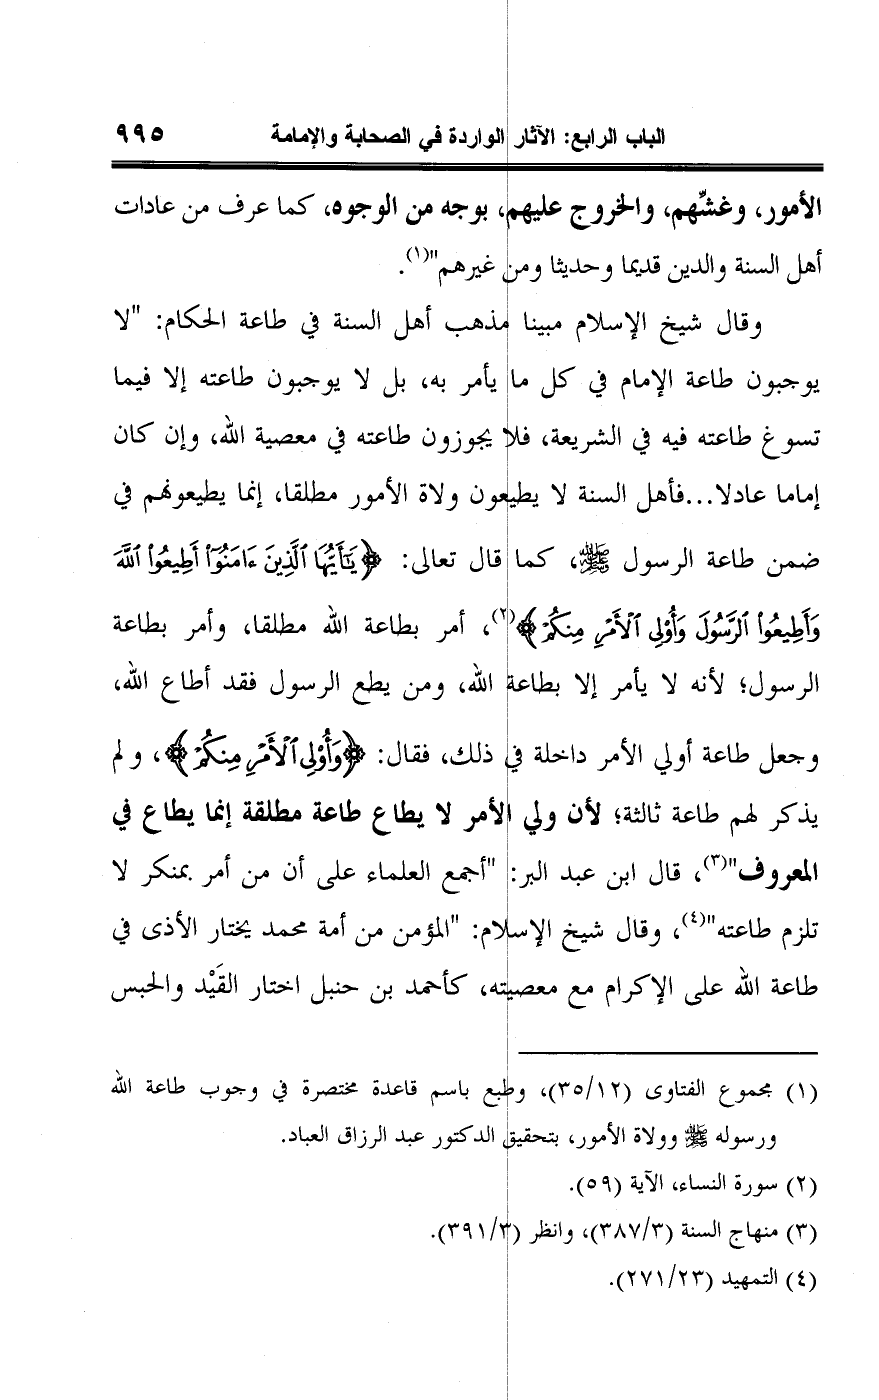 الباب الرابع: الآثار الواردة في الصحابة والإمامة ٩٩٥
الأمور، وغشِّهم، والخروج عليهم، بوجه من الوجوه، كما عرف من عادات
أهل السنة والدين قديما وحديثا ومن غيرهم"(١).
وقال شيخ الإسلام مبينا مذهب أهل السنة في طاعة الحكام: "لا
يوجبون طاعة الإمام في كل ما يأمر به، بل لا يوجبون طاعته إلا فيما
تسوغ طاعته فيه في الشريعة، فلا يجوزون طاعته في معصية الله، وإن كان
إماما عادلا...فأهل السنة لا يطيعون ولاة الأمور مطلقا، إنما يطيعونهم في
ضمن طاعة الرسول ﷺ، كما قال تعالى: ﴿يَٰٓأَيُّهَا ٱلَّذِينَ ءَامَنُوٓاْ أَطِيعُواْ ٱللَّهَ
وَأَطِيعُواْ ٱلرَّسُولَ وَأُوْلِى ٱلْأَمْرِ مِنكُمْ﴾(٢)، أمر بطاعة الله مطلقا، وأمر بطاعة
الرسول؛ لأنه لا يأمر إلا بطاعة الله، ومن يطع الرسول فقد أطاع الله،
وجعل طاعة أولي الأمر داخلة في ذلك، فقال: ﴿وَأُوْلِى ٱلْأَمْرِ مِنكُمْ﴾، ولم
يذكر لهم طاعة ثالثة؛ لأن ولي الأمر لا يطاع طاعة مطلقة إنما يطاع في
المعروف"(٣)، قال ابن عبد البر: "أجمع العلماء على أن من أمر بمنكر لا
تلزم طاعته"(٤)، وقال شيخ الإسلام: "المؤمن من أمة محمد يختار الأذى في
طاعة الله على الإكرام مع معصيته، كأحمد بن حنبل اختار القَيْد والحبس
(١) مجموع الفتاوى (٣٥/١٢)، وطبع باسم قاعدة مختصرة في وجوب طاعة الله
ورسوله ﷺ وولاة الأمور، بتحقيق الدكتور عبد الرزاق العباد.
(٢) سورة النساء، الآية (٥٩).
(٣) منهاج السنة (٣٨٧/٣)، وانظر (٣٩١/٣).
(٤) التمهيد (٢٧١/٢٣).